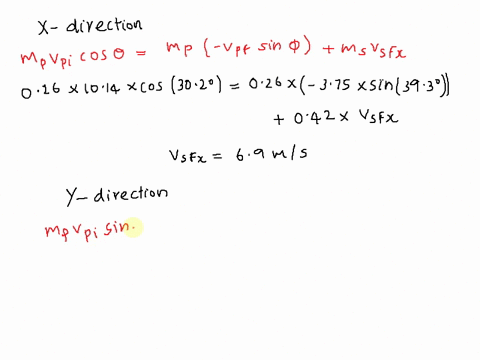 X-direction
mpvpi cos θ = mp (-vpf sin ϕ) + msvsfx
0.26 × 10.14 × cos (30.2°) = 0.26 × (-3.75 × sin(39.3°))
+ 0.42 × Vsfx
Vsfx = 6.9 m/s
Y-direction
mpvpi sin